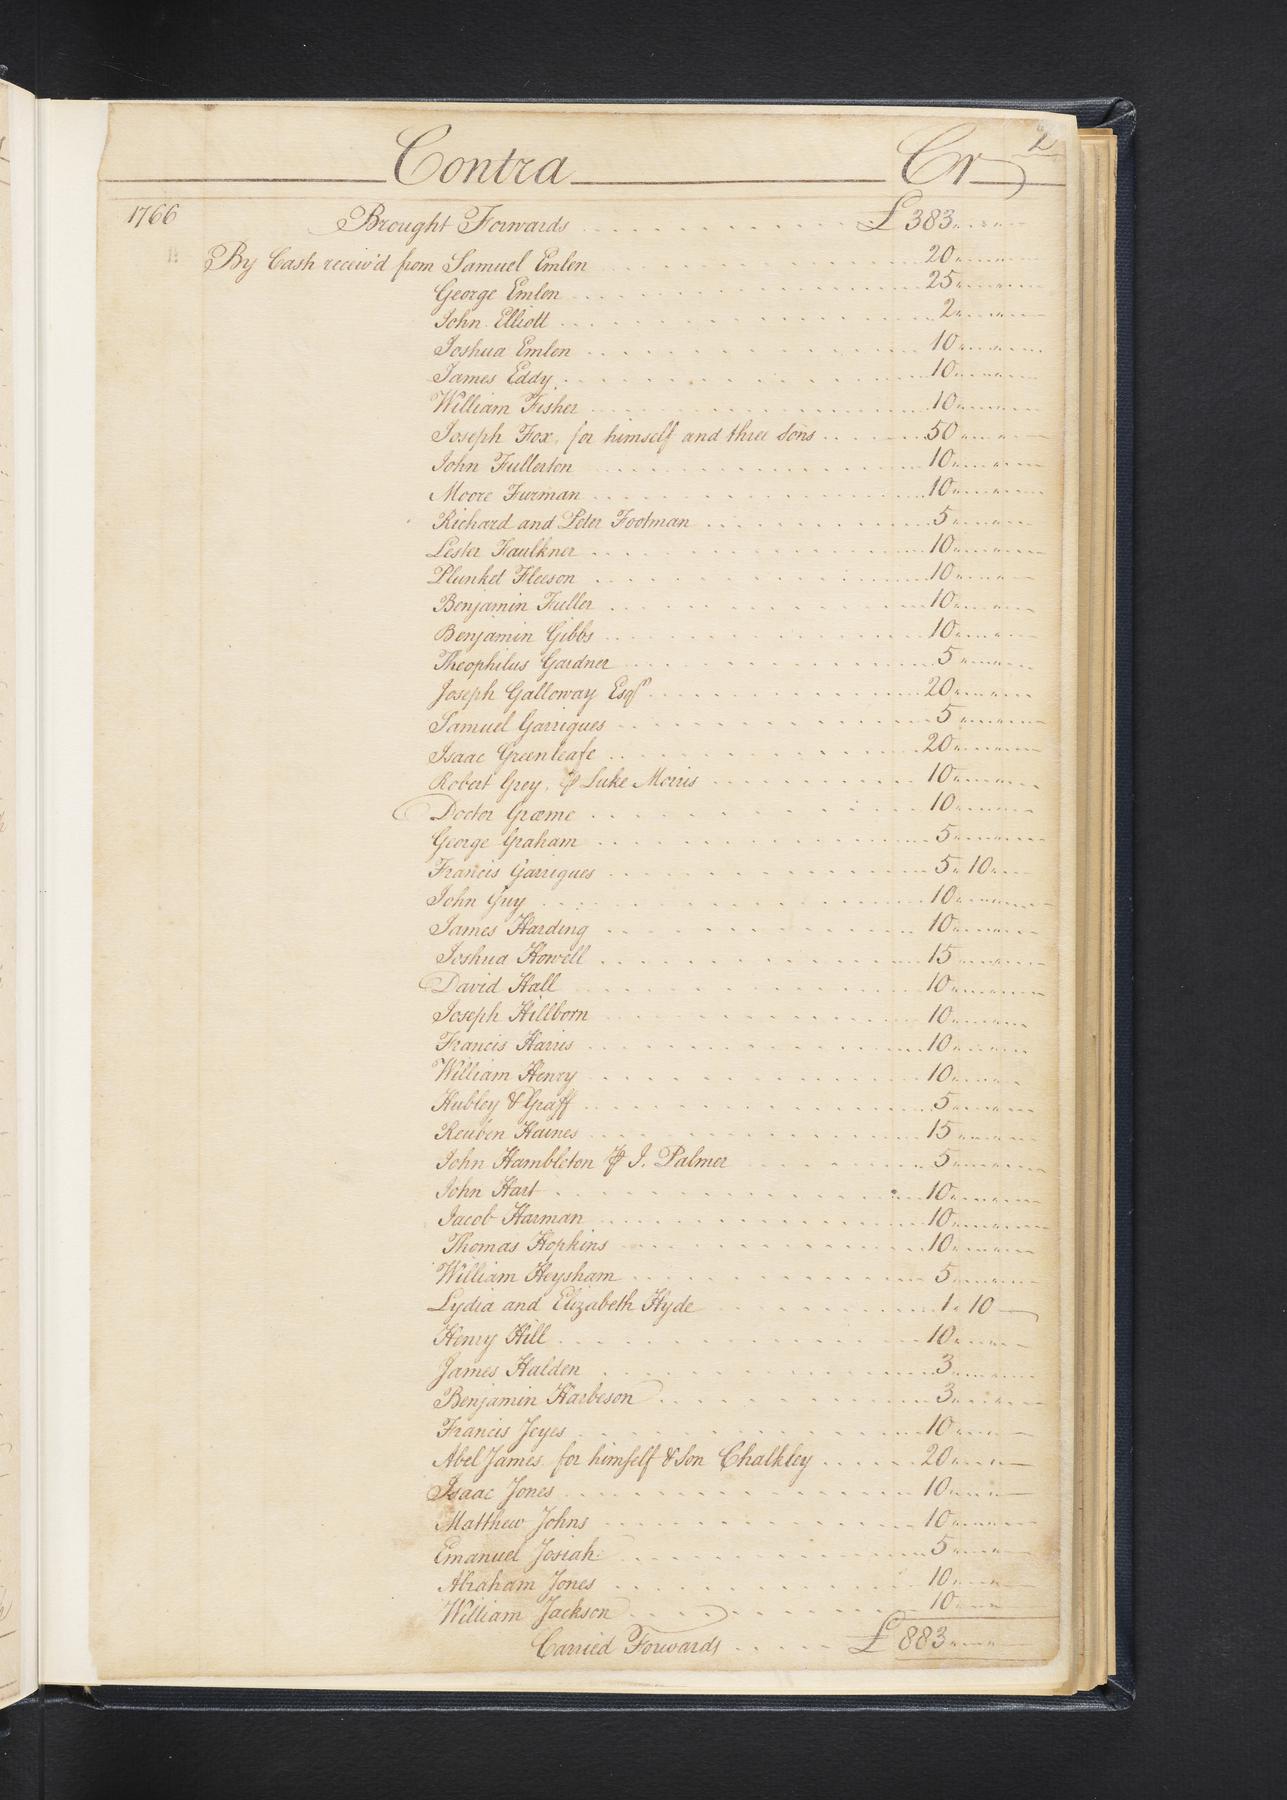 2
Contra Cr
1766 Brought Forwards £383
By Cash receiv'd from Samuel Emlen 20
George Emlen 25
John Elliott 2
Joshua Emlen 10
James Eddy 10
William Fisher 10
Joseph Fox, for himself and three Sons 50
John Fullerton 10
Moore Furman 10
Richard and Peter Footman 5
Lester Faulkner 10
Plunket Fleeson 10
Benjamin Fuller 10
Benjamin Gibbs 10
Theophilus Gardner 5
Joseph Galloway Esqr 20
Samuel Garrigues 5
Isaac Greenleafe 20
Robert Grey, ⅌ Luke Morris 10
Doctor Græme 10
George Graham 5
Francis Garrigues 5 " 10
John Guy 10
James Harding 10
Joshua Howell 15
David Hall 10
Joseph Hillborn 10
Francis Harris 10
William Henry 10
Hubley & Graff 5
Reuben Haines 15
John Hambleton ⅌ J. Palmer 5
John Hart 10
Jacob Harman 10
Thomas Hopkins 10
William Heysham 5
Lydia and Elizabeth Hyde 1 " 10
Henry Hill 10
James Halden 3
Benjamin Harbeson 3
Francis Jeyes 10
Abel James, for himself & Son Chalkley 20
Isaac Jones 10
Matthew Johns 10
Emanuel Josiah 5
Abraham Jones 10
William Jackson 10
Carried Forwards £883